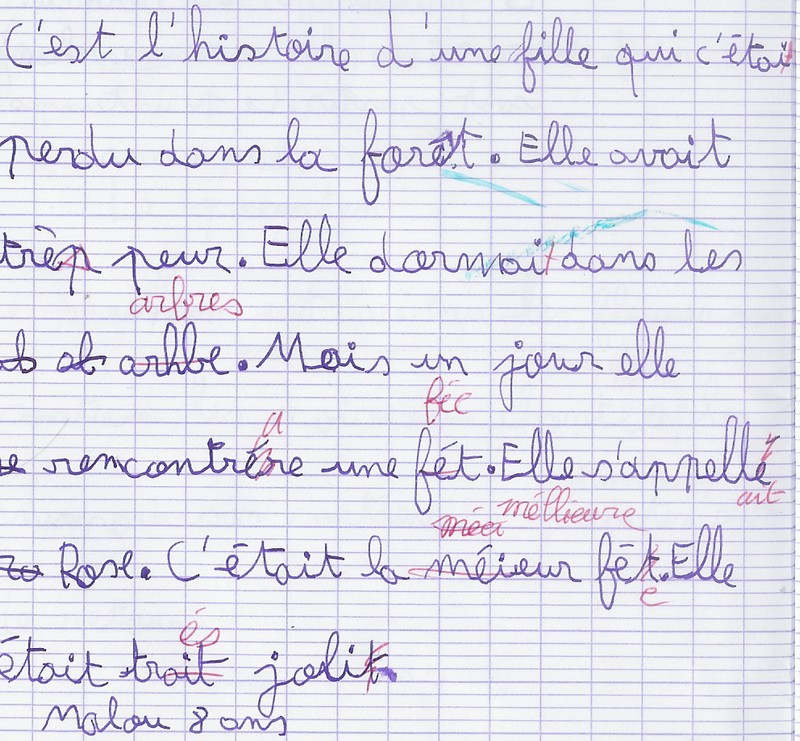 C'est l'histoire d'une fille qui c'étai
perdu dans la forêt. Elle avait
très peur. Elle dormait dans les
arbres
arhbe. Mais un jour elle
fée
a
rencontrére une fét. Elle s'appellé
ait
méllieure
Rose. C'était la méieur fét. Elle
e
és
était troit jolit
Malou 8 ans